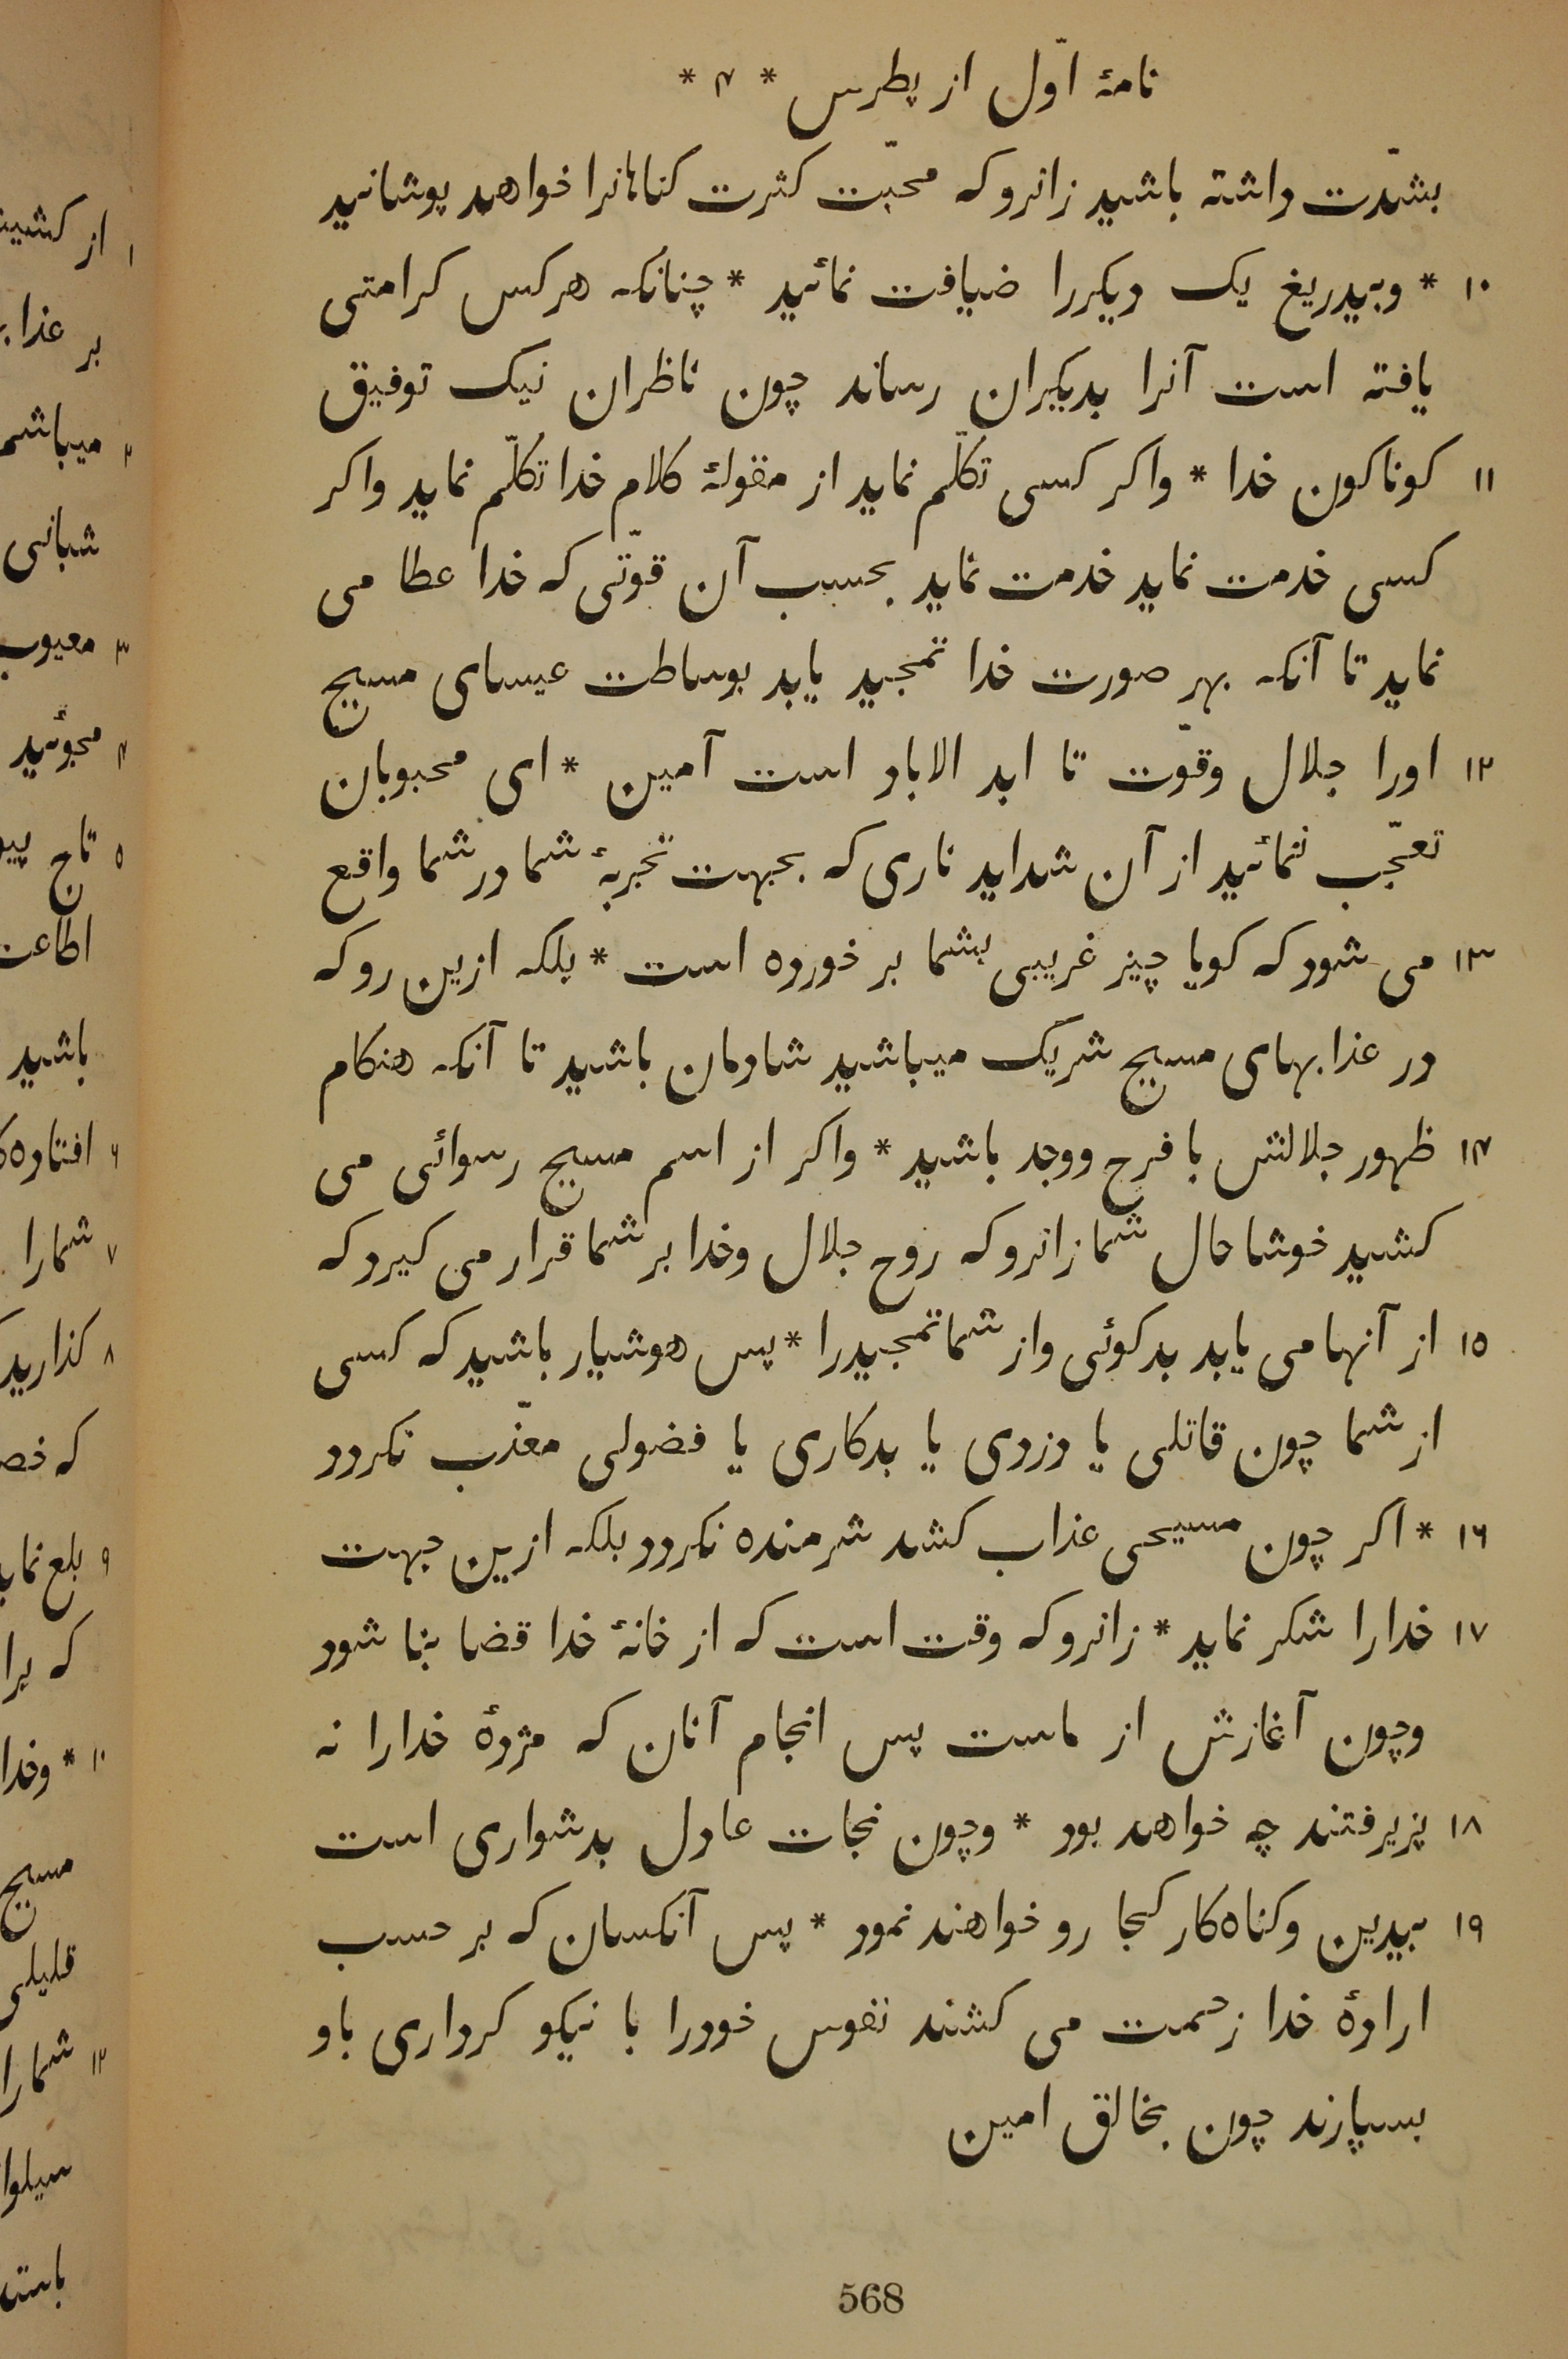 نامهٔ اوّل از پطرس * ۴ *
بشدّت داشته باشید زانروکه محبّت کثرت کناهانرا خواهد پوشانید
۱۰ * وبیدریغ یک دیکررا ضیافت نمائید * چنانکه هرکس کرامتی
یافته است آنرا بدیکران رساند چون ناظران نیک توفیق
۱۱ کوناکون خدا * واکر کسی تکلّم نماید از مقولهٔ کلام خدا تکلّم نماید واکر
کسی خدمت نماید خدمت نماید بحسب آن قوّتی که خدا عطا می
نماید تا آنکه بهر صورت خدا تمجید یابد بوساطت عیسای مسیح
۱۲ اورا جلال وقوّت تا ابد الاباد است آمین * ای محبوبان
تعجّب ننمائید از آن شداید ناری که بجهت تجربهٔ شما در شما واقع
۱۳ می شود که کویا چیز غریبی بشما بر خورده است * بلکه ازین روکه
در عذابهای مسیح شریک میباشید شادمان باشید تا آنکه هنکام
۱۴ ظهور جلالش با فرح ووجد باشید * واکر از اسم مسیح رسوائی می
کشید خوشا حال شما زانروکه روح جلال وخدا بر شما قرار می کیرد که
۱۵ از آنها می یابد بدکوئی واز شما تمجیدرا * پس هوشیار باشید که کسی
از شما چون قاتلی یا دزدی یا بدکاری یا فضولی معذّب نکردد
۱۶ * اکر چون مسیحی عذاب کشد شرمنده نکردد بلکه ازین جهت
۱۷ خدارا شکر نماید * زانروکه وقت است که از خانهٔ خدا قضا بنا شود
وچون آغازش از ماست پس انجام آنان که مژدهٔ خدارا نه
۱۸ پزیرفتند چه خواهد بود * وچون نجات عادل بدشواری است
۱۹ بیدین وکناه‌کار کجا رو خواهند نمود * پس آنکسان که بر حسب
ارادهٔ خدا زحمت می کشند نفوس خودرا با نیکو کرداری باو
بسپارند چون بخالق امین
568
۱ از
بر
۲
شبانی
۳
۴ مجوئید
۵ تاج
باشید
۶
۷ شمارا
۸
که
۹ بلع
که
۱۰ * وخدا
مسیح
قلیلی
۱۲ شمارا